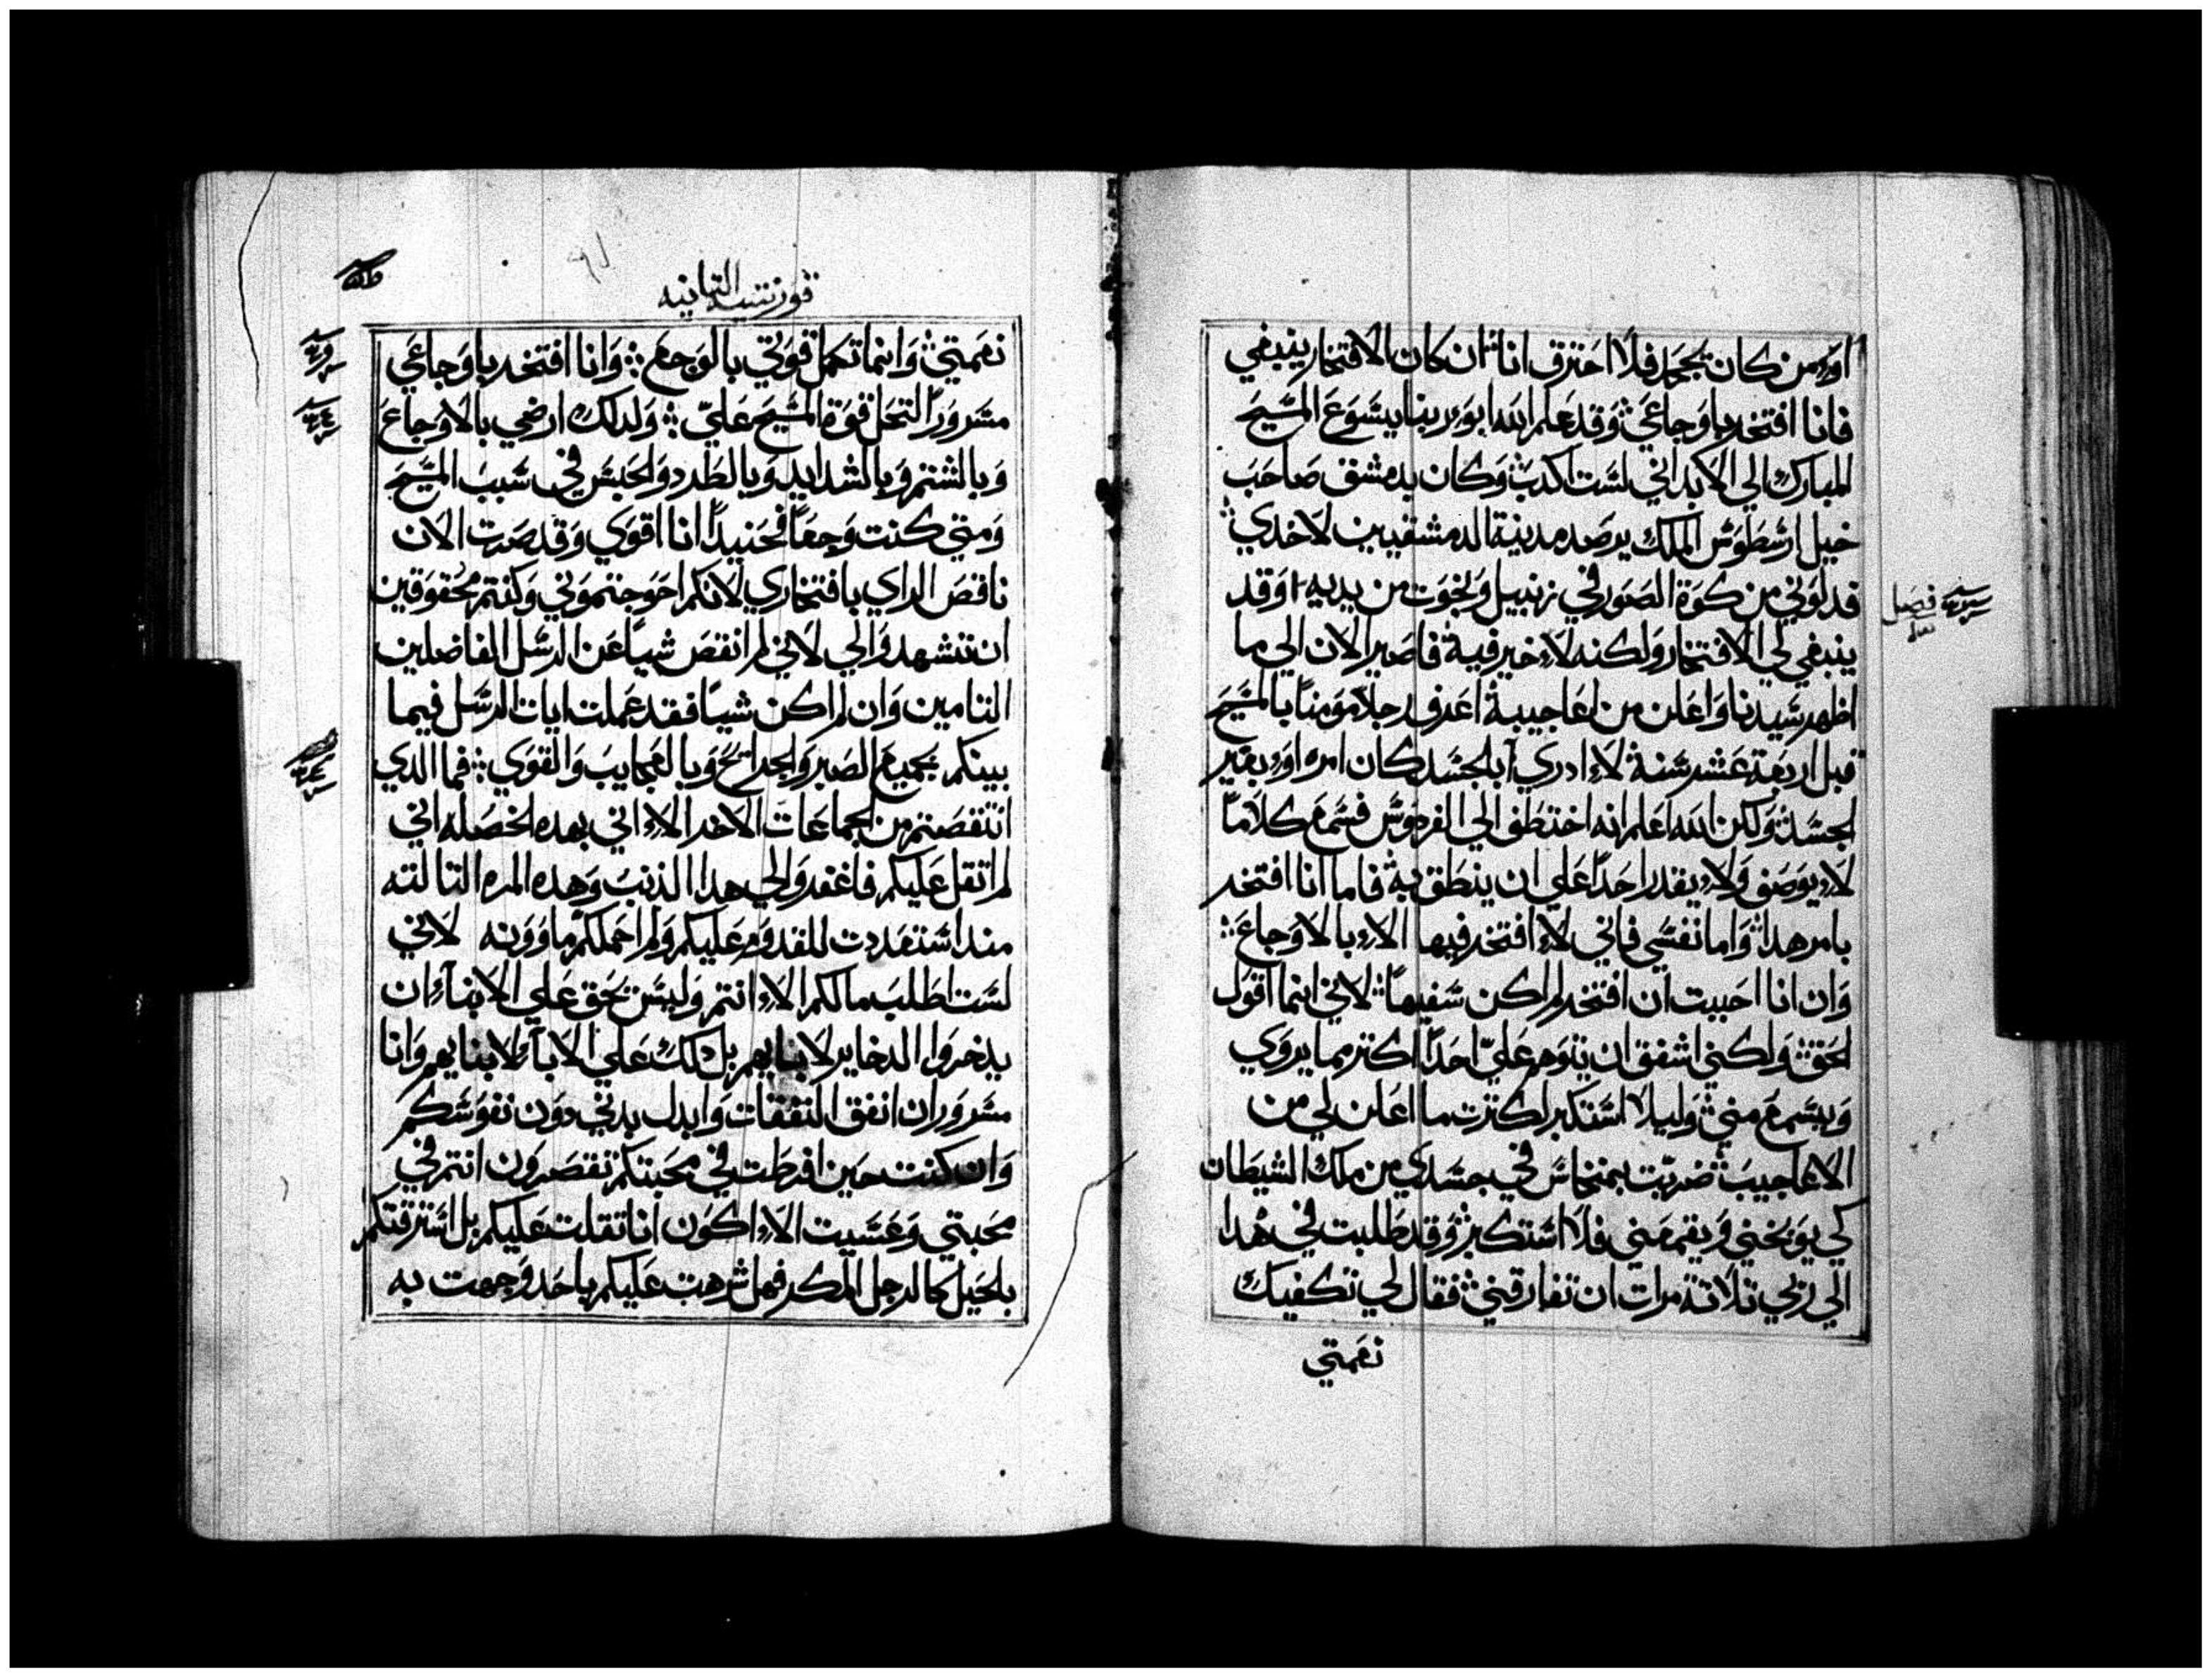 اوء من كان يجحد فلا احترق انا ان كان الافتخار ينبغي
فانا افتخر باوجاعي وقد علم الله ابو ربنا يسوع المسيح
المبارك الي الابد اني لست اكدب وكان بدمشق صاحب
خيل ارسطوس الملك يرصد مدينة الدمشقيين لاخدي
فدلوني من كوة الصور في زنبيل ونجوت من يديه وقد
ينبغي لي الافتخار ولكنه لا خير فيه فاصير الان الي ما
اظهر سيدنا واعلن من اعاجيبه اعرف رجلا مومنا بالمسيح
قبل اربعة عشر سنة لا ادري آبالجسد كان امره اوء بغير
الجسد ولكن الله اعلم انه اختطف الي الفردوس فسمع كلاما
لا يوصف ولا يقدر احدا علي ان ينطق به فاما انا افتخر
بامر هدا واما نفسي فاني لا افتخر فيها الا بالاوجاع
وان انا احببت ان افتخر لم اكن سفيها لاني انما اقول
الحق ولكني اشفق ان يتوهم عليّ احدا اكتر مما يروي
ويسمع مني وليلا استكبر لكترت ما اعلن لي من
الاعاجيب ضربت بمنخاس في جسدي من ملك الشيطان
كي يوبخني ويقمعني فلا استكبر وقد طلبت في هدا
الي ربي تلاتة مرات ان تفارقني فقال لي تكفيك
نعمتي
فصل
قورنتيه التانيه
نعمتي وانما تكمل قوتي بالوجع وانا افتخر باوجاعي
مسرورا لتحل قوة المسيح عليّ ولدلك ارضي بالاوجاع
وبالشتم وبالشدايد وبالطرد والحبس في سبب المسيح
ومتي كنت وجعا فحنيدا انا اقوي وقد صرت الان
ناقص الراي بافتخاري لانكم احوجتموني وكنتم محقوقين
ان تشهدوا لي لاني لم انقص شيا عن الرسل الفاضلين
التامين وان لم اكن شيا فقد عملت ايات الرسل فيما
بينكم بجميع الصبر والجرايح وبالعجايب والقوي فما الدي
انتقصتم من الجماعات الاخر الا اني بهده الخصله اني
لم اتقل عليكم فاغفروا لي هدا الذنب وهده المره التالته
مند استعددت للقدوم عليكم ولم احملكم ماوونه لاني
لست اطلب مالكم الا انتم وليس يحق علي الابناء ان
يدخروا الدخاير لابايهم بل دلك علي الاباء لابنايهم وانا
مسرور ان انفق النفقات وابدل بدني دون نفوسكم
وان كنت حين افرطت في محبتكم تقصرون انتم في
محبتي وعسيت الا اكون انا تقلت عليكم بل استرقتكم
بلحيل كالرجل المكر فهل شرهت عليكم باحد وجهت به